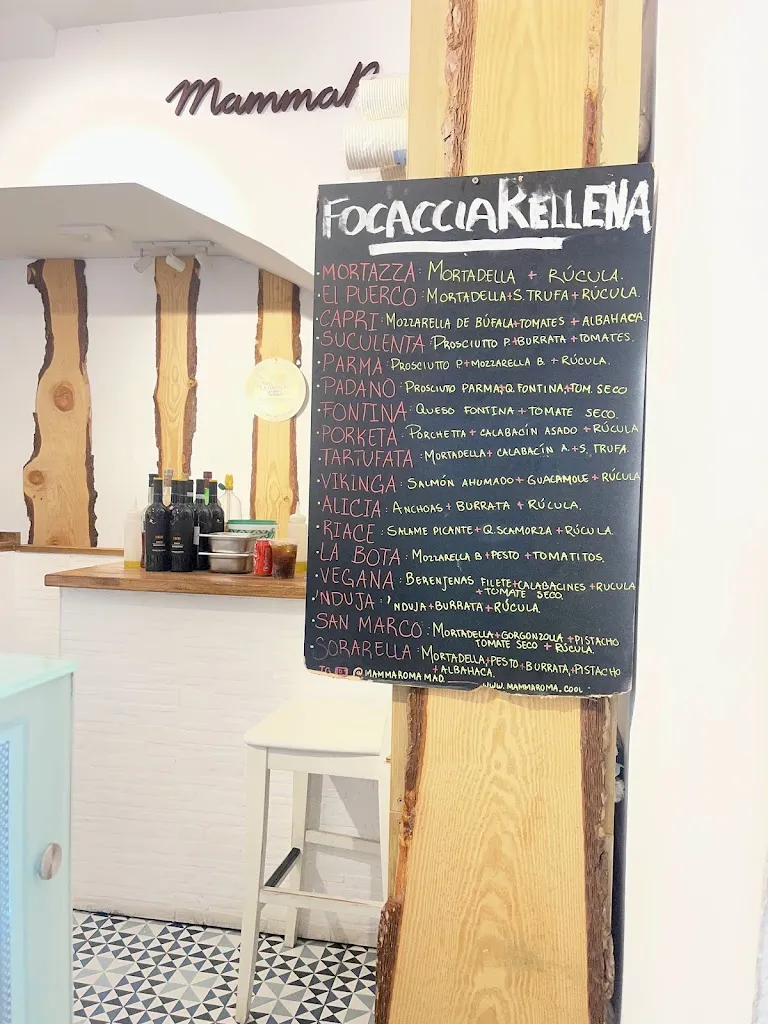 MammaR
FOCACCIA RELLENA
· MORTAZZA: MORTADELLA + RÚCULA.
· EL PUERCO: MORTADELLA+S. TRUFA + RÚCULA.
· CAPRI: MOZZARELLA DE BÚFALA+TOMATES + ALBAHACA.
· SUCULENTA: PROSCIUTTO P.+BURRATA + TOMATES.
· PARMA: PROSCIUTTO P.+MOZZARELLA B. + RÚCULA.
· PADANO: PROSCIUTO PARMA+Q. FONTINA+TOM. SECO
· FONTINA: QUESO FONTINA + TOMATE SECO.
· PORKETA: PORCHETTA + CALABACÍN ASADO + RÚCULA
· TARTUFATA: MORTADELLA + CALABACÍN A.+S. TRUFA.
· VIKINGA: SALMÓN AHUMADO + GUACAMOLE + RÚCULA
· ALICIA: ANCHOAS + BURRATA + RÚCULA.
· RIACE: SALAME PICANTE + Q. SCAMORZA + RÚCULA.
· LA BOTA: MOZZARELLA B+PESTO + TOMATITOS.
· VEGANA: BERENJENAS FILETE+CALABACINES +RUCULA
+ TOMATE SECO.
· 'NDUJA: 'NDUJA+BURRATA+RÚCULA.
· SAN MARCO: MORTADELLA+GORGONZOLA +PISTACHO
TOMATE SECO + RÚCULA.
· SORARELLA: MORTADELLA+PESTO+BURRATA+PISTACHO
+ ALBAHACA.
@MAMMAROMA MAD. WWW.MAMMAROMA.COOL